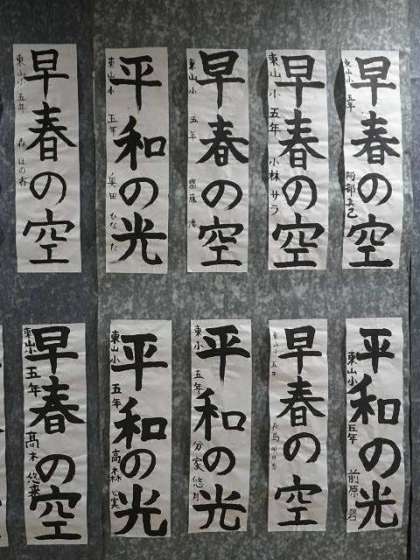 早春の空
東山小 五年
平和の光
東山小 五年
早春の空
東山小 五年
早春の空
東山小 五年 小林サラ
早春の空
東山小 五年
早春の空
東山小 五年 髙木
平和の光
東山小 五年 高森
平和の光
東小 五年 分家悠月
早春の空
平和の光
東山小 五年 前原